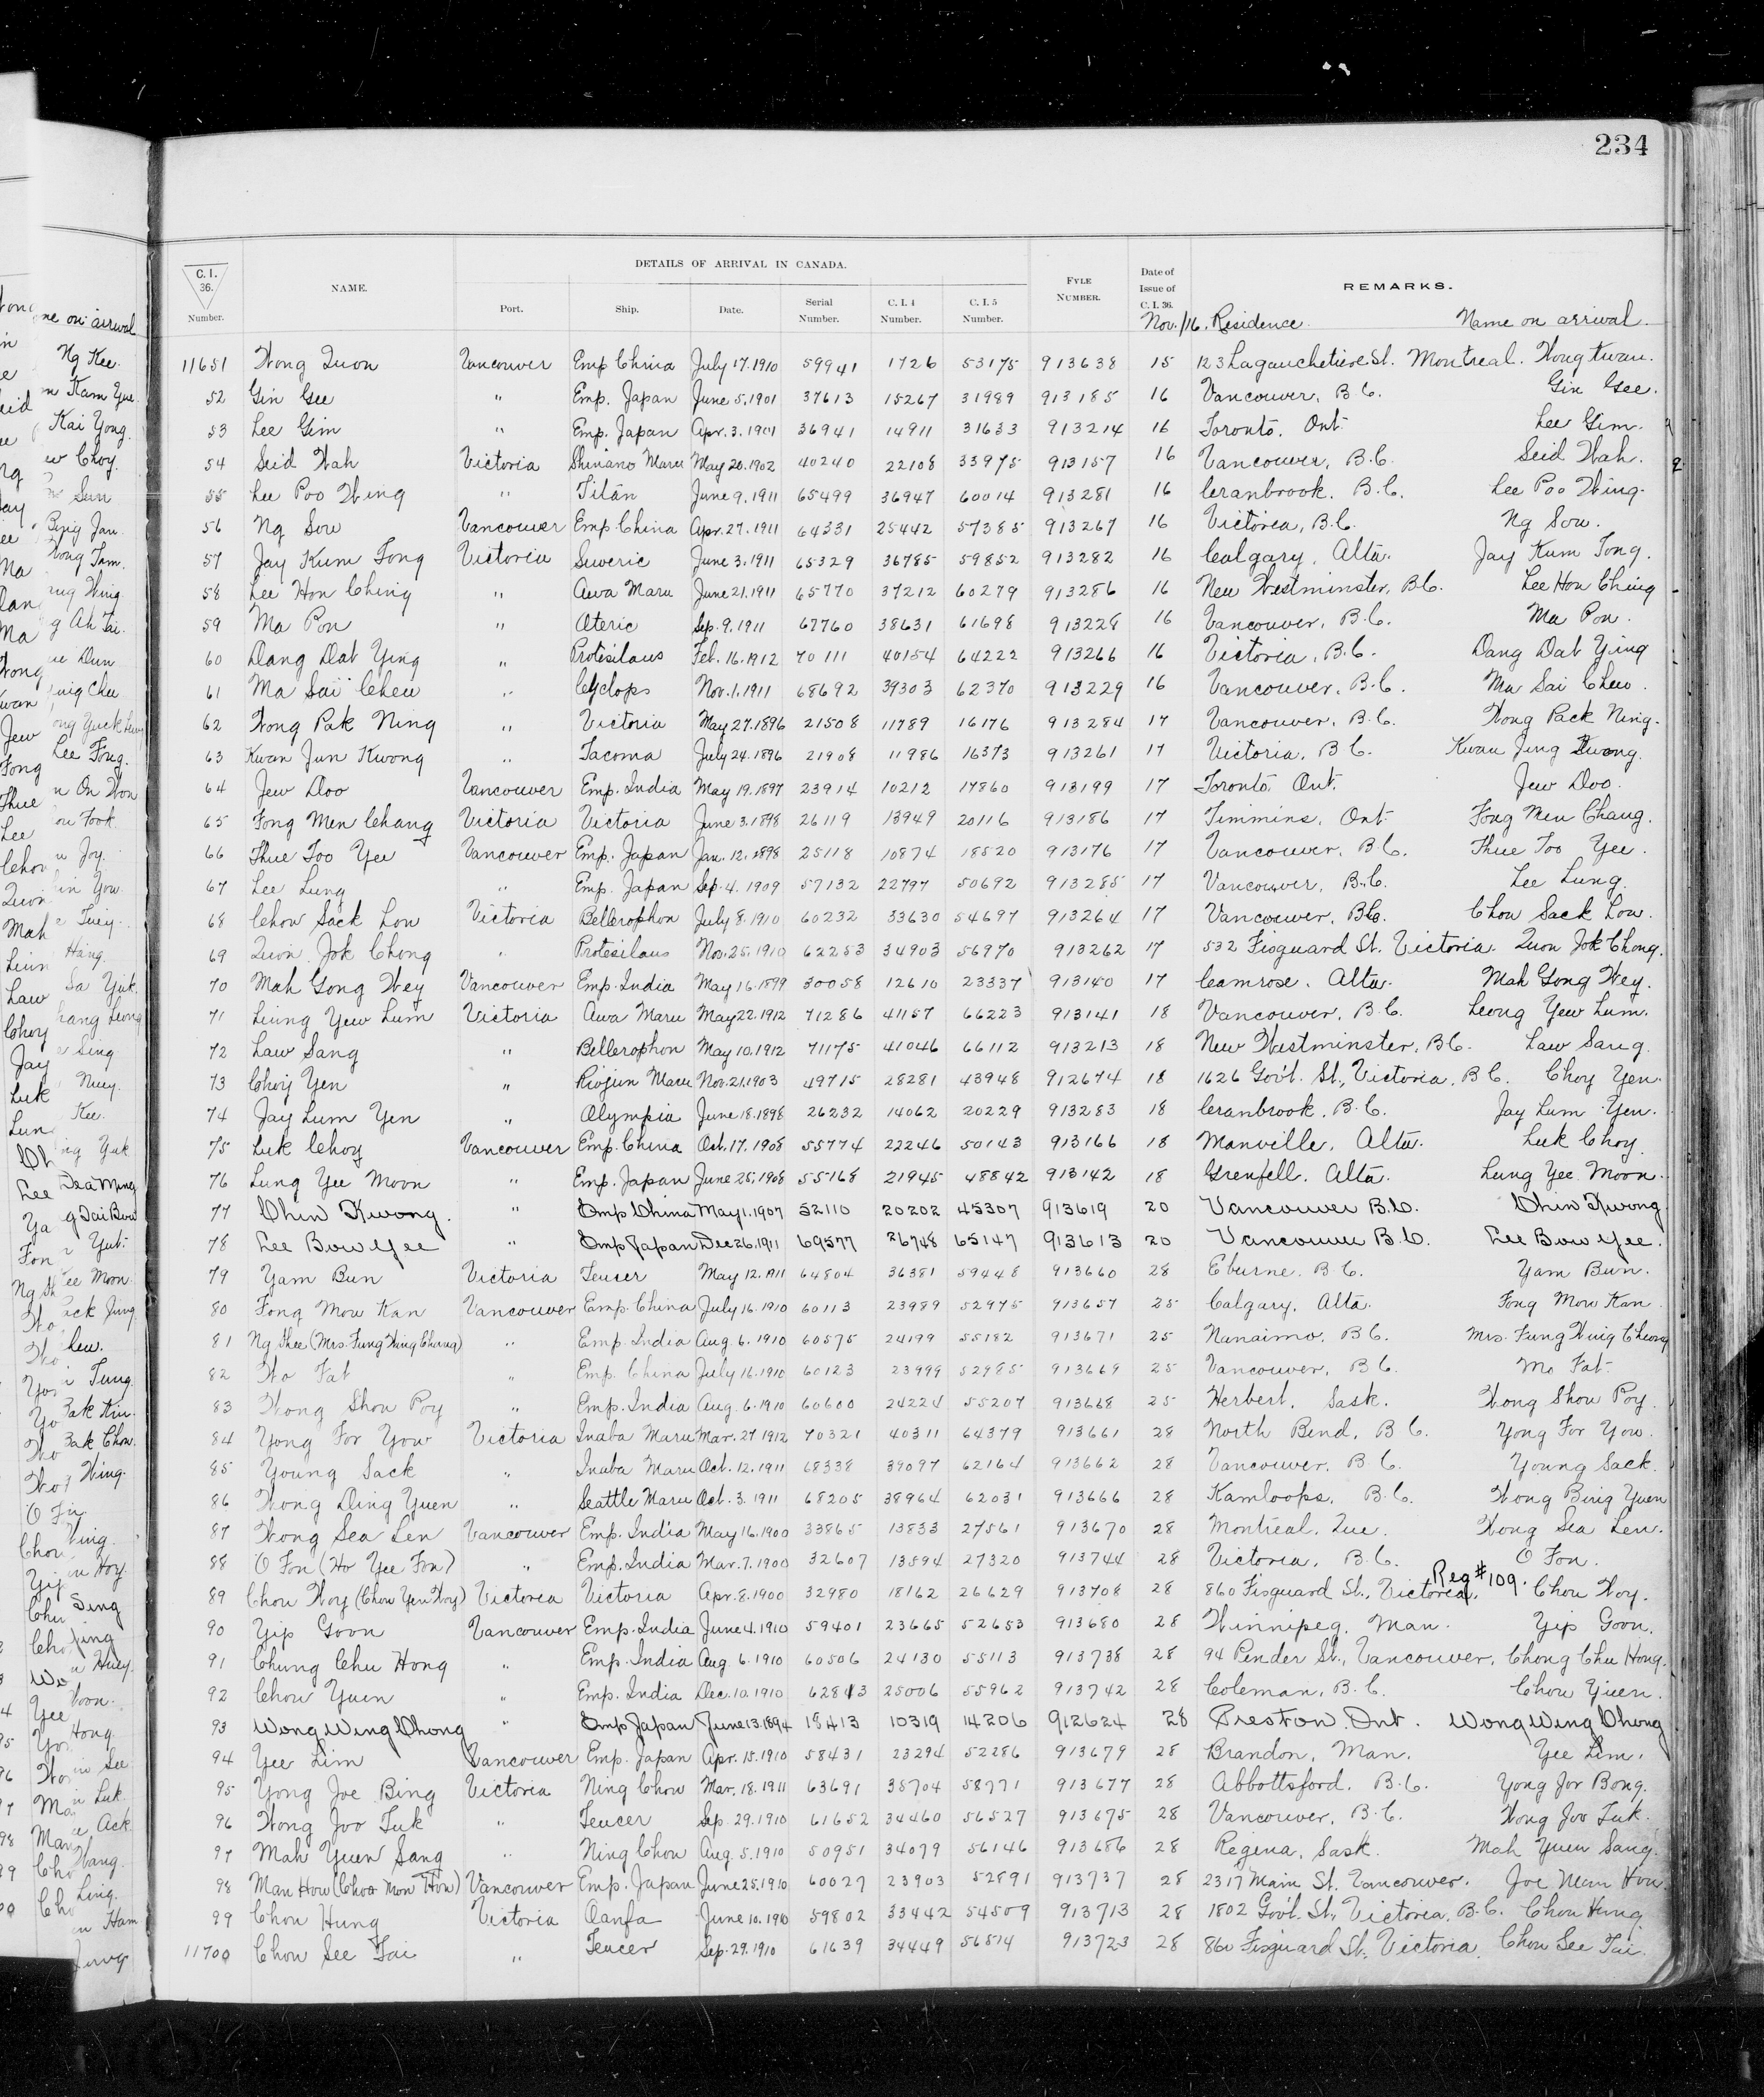 234
C. I. 36. Number.
NAME.
DETAILS OF ARRIVAL IN CANADA.
Port. Ship. Date. Serial Number. C. I. 4 Number. C. I. 5 Number.
FYLE NUMBER.
Date of Issue of C. I. 36.
REMARKS.
Nov./16. Residence. Name on arrival.
11651 Wong Quon Vancouver Emp China July 17. 1910 59941 1726 53175 913638 15 123 Lagauchetiere St. Montreal. Wong Kwan.
52 Gin Gee " Emp. Japan June 5. 1901 37613 15267 31989 913185 16 Vancouver, B C. Gin Gee.
53 Lee Gim " Emp. Japan Apr. 3. 1901 36941 14911 31633 913214 16 Toronto. Ont Lee Gim.
54 Seid Wah Victoria Shinano Maru May 20. 1902 40240 22108 33975 913157 16 Vancouver, B.C. Seid Wah.
55 Lee Poo Wing " Titan June 9. 1911 65499 36947 60014 913281 16 Cranbrook. B.C. Lee Poo Wing.
56 Ng Sow Vancouver Emp China Apr. 27. 1911 64331 25442 57385 913267 16 Victoria, B.C. Ng Sow.
57 Jay Kum Tong Victoria Suveric June 3. 1911 65329 36785 59852 913282 16 Calgary, Alta. Jay Kum Tong.
58 Lee Hon Ching " Awa Maru June 21. 1911 65770 37212 60279 913286 16 New Westminster, B.C. Lee Hon Ching
59 Ma Pon " Oteric Sep. 9. 1911 67760 38631 61698 913228 16 Vancouver, B.C. Ma Pon.
60 Dang Dat Ying " Protesilaus Feb. 16. 1912 70111 40154 64222 913266 16 Victoria, B.C. Dang Dat Ying
61 Ma Sai Chew " Cyclops Nov. 1. 1911 68692 39303 62370 913229 16 Vancouver, B.C. Ma Sai Chew.
62 Wong Pak Ning " Victoria May 27. 1896 21508 11789 16176 913284 17 Vancouver, B.C. Wong Pack Ning.
63 Kwan Jun Kwong " Tacoma July 24. 1896 21908 11986 16373 913261 17 Victoria, B C. Kwan Jing Kwong.
64 Jew Doo Vancouver Emp. India May 19. 1897 23914 10212 17860 913199 17 Toronto, Ont. Jew Doo.
65 Fong Men Chang Victoria Victoria June 3. 1898 26119 13949 20116 913186 17 Timmins, Ont Fong Men Chang.
66 Thue Too Yee Vancouver Emp. Japan Jan. 12. 1898 25118 10874 18520 913176 17 Vancouver, B.C. Thue Too Yee.
67 Lee Lung " Emp. Japan Sep. 4. 1909 57132 22797 50692 913285 17 Vancouver, B.C. Lee Lung.
68 Chow Sack Low Victoria Bellerophon July 8. 1910 60232 33630 54697 913264 17 Vancouver, B.C. Chow Sack Low.
69 Quon Jok Chong " Protesilaus Nov. 25. 1910 62253 34903 56970 913262 17 532 Fisguard St. Victoria. Quon Jok Chong.
70 Mah Gong Wey Vancouver Emp. India May 16. 1899 30058 12610 23337 913140 17 Camrose, Alta. Mah Gong Wey.
71 Liung Yew Lum Victoria Awa Maru May 22. 1912 71286 41157 66223 913141 18 Vancouver, B.C. Leong Yew Lum.
72 Law Sang " Bellerophon May 10. 1912 71175 41046 66112 913213 18 New Westminster, B.C. Law Sang.
73 Choy Yen " Riojun Maru Nov. 21. 1903 49715 28281 43948 912674 18 1626 Gov't. St., Victoria, B C. Choy Yen.
74 Jay Lum Yen " Olympia June 18. 1898 26232 14062 20229 913283 18 Cranbrook, B.C. Jay Lum Yen.
75 Luk Choy Vancouver Emp. China Oct. 17. 1908 55774 22246 50143 913166 18 Manville, Alta. Luk Choy.
76 Lung Yee Moon " Emp. Japan June 25. 1908 55168 21945 48842 913142 18 Grenfell. Alta. Lung Yee Moon.
77 Chin Kwong. " Emp China May 1. 1907 52110 20202 45307 913619 20 Vancouver B.C. Chin Kwong
78 Lee Bow Yee " Emp Japan Dec 26. 1911 69577 26748 65147 913613 20 Vancouver B.C. Lee Bow Yee.
79 Yam Bun Victoria Teucer May 12. 1911 64804 36381 59448 913660 28 Eburne. B.C. Yam Bun.
80 Fong Mow Kan Vancouver Emp. China July 16. 1910 60113 23989 52975 913657 25 Calgary, Alta. Fong Mow Kan
81 Ng Shee (Mrs. Fung Wing Chong) " Emp. India Aug. 6. 1910 60575 24199 55182 913671 25 Nanaimo, B C. Mrs. Fung Wing Cheong
82 Wo Fat " Emp. China July 16. 1910 60123 23999 52985 913669 25 Vancouver, B C. Mo Fat
83 Wong Show Poy " Emp. India Aug. 6. 1910 60600 24224 55207 913668 25 Herbert, Sask. Wong Show Poy.
84 Yong For Yow Victoria Inaba Maru Mar. 27 1912 70321 40311 64379 913661 28 North Bend, B C. Yong For Yow.
85 Young Sack " Inaba Maru Oct. 12. 1911 68338 39097 62164 913662 28 Vancouver, B C. Young Sack.
86 Wong Ding Yuen " Seattle Maru Oct. 3. 1911 68205 38964 62031 913666 28 Kamloops, B.C. Wong Bing Yuen
87 Wong Sea Len Vancouver Emp. India May 16. 1900 33865 13833 27561 913670 28 Montreal, Que. Wong Sea Len.
88 O Fon (Ho Yee Fon) " Emp. India Mar. 7. 1900 32607 13594 27320 913744 28 Victoria, B.C. O Fon.
Reg #109.
89 Chou Woy (Chou Yen Woy) Victoria Victoria Apr. 8. 1900 32980 18162 26629 913708 28 860 Fisguard St., Victoria. Chou Woy.
90 Yip Goon Vancouver Emp. India June 4. 1910 59401 23665 52653 913680 28 Winnipeg, Man. Yip Goon.
91 Chung Chu Hong " Emp. India Aug. 6. 1910 60506 24130 55113 913738 28 94 Pender St., Vancouver, Chong Chu Hong.
92 Chow Yuen " Emp. India Dec. 10. 1910 62813 25006 55962 913742 28 Coleman, B.C. Chow Yuen.
93 Wong Wing Chong " Emp Japan June 13. 1894 18413 10319 14206 912624 28 Preston. Ont. Wong Wing Chong
94 Yee Lim Vancouver Emp. Japan Apr. 15. 1910 58431 23294 52286 913679 28 Brandon, Man. Yee Lim.
95 Yong Joe Bing Victoria Ning Chow Mar. 18. 1911 63691 35704 58771 913677 28 Abbottsford. B.C. Yong Jor Bong.
96 Wong Joo Tuk " Teucer Sep. 29. 1910 61652 34460 56527 913675 28 Vancouver, B.C. Wong Joo Tuk.
97 Mah Yuen Sang " Ning Chow Aug. 5. 1910 50951 34079 56146 913686 28 Regina, Sask. Mah Yuen Sang.
98 Man How (Choo Mon How) Vancouver Emp. Japan June 25. 1910 60027 23903 52891 913737 28 2317 Main St. Vancouver. Joe Man How.
99 Chou Hung Victoria Oanfa June 10. 1910 59802 33442 54509 913713 28 1802 Gov't. St., Victoria, B.C. Chou Hung
11700 Chou See Tai " Teucer Sep. 29. 1910 61639 34449 56514 913723 28 860 Fisguard St., Victoria. Chou See Tai.